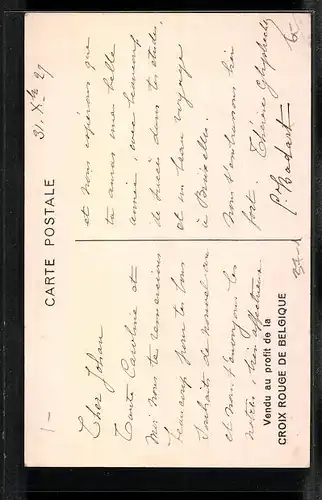 CARTE POSTALE
31. Xbre 29
Cher Johan
Tante Caroline et
moi nous te remercions
beaucoup pour tes bons
souhaits de nouvel an
et nous t'envoyons les
notres bien affectueux.
et nous espérons que
tu auras une belle
année, avec beaucoup
de succès dans tes études,
et un beau voyage
à Bruxelles.
Nous t'embrassons bien
fort. Thérèse
Vendu au profit de la
CROIX ROUGE DE BELGIQUE